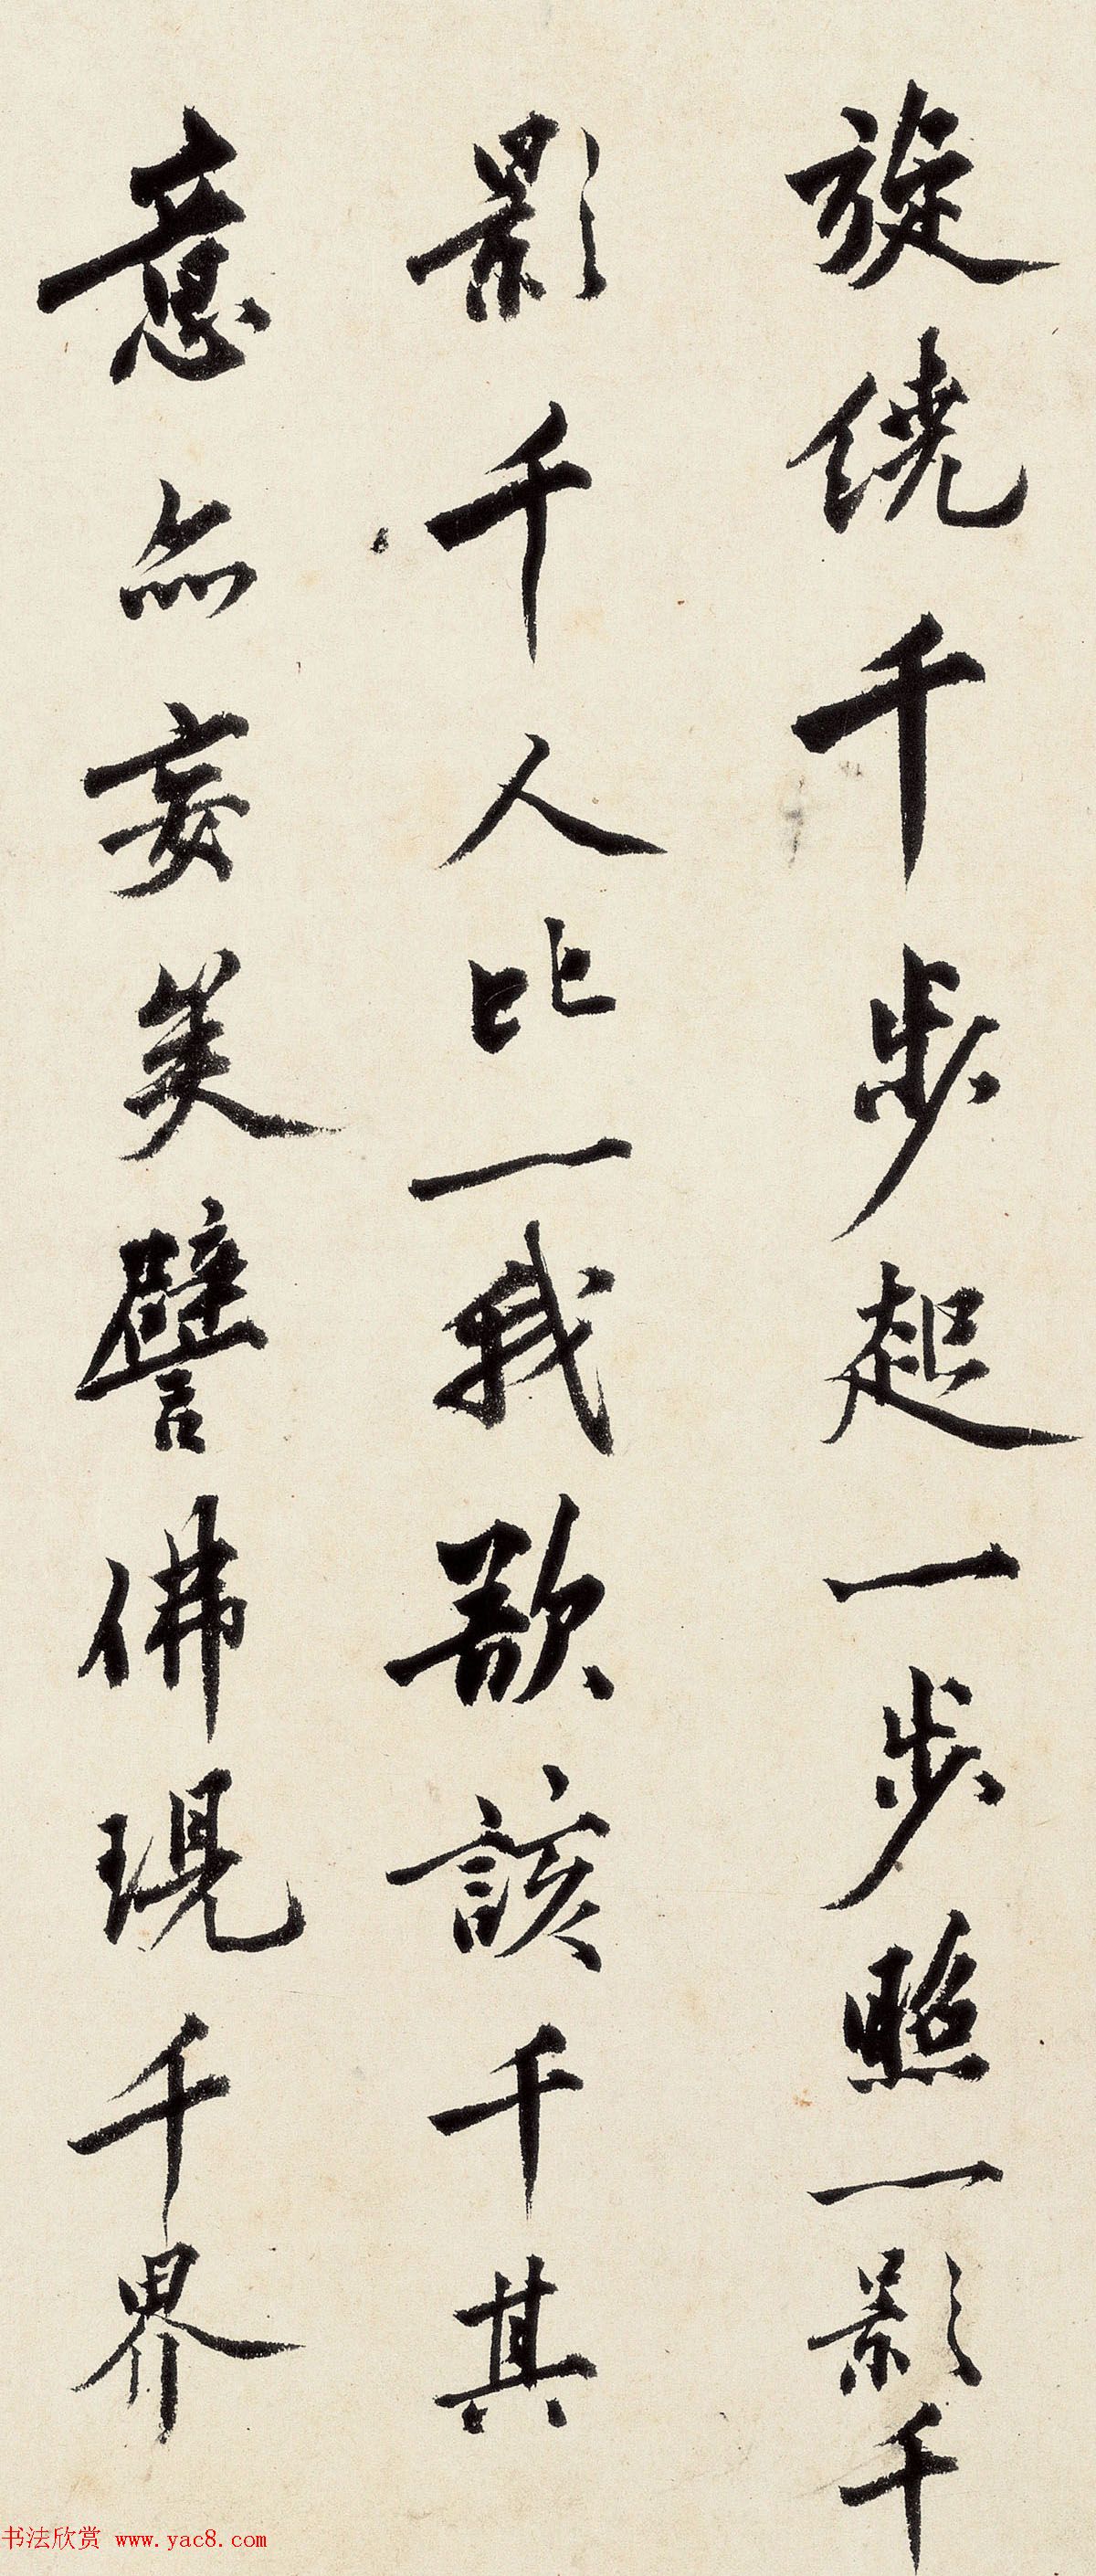 旋繞千步起一步照一影千
影千人比一我歌該千其
意亦妄矣譬佛現千界
书法欣赏 www.yac8.com